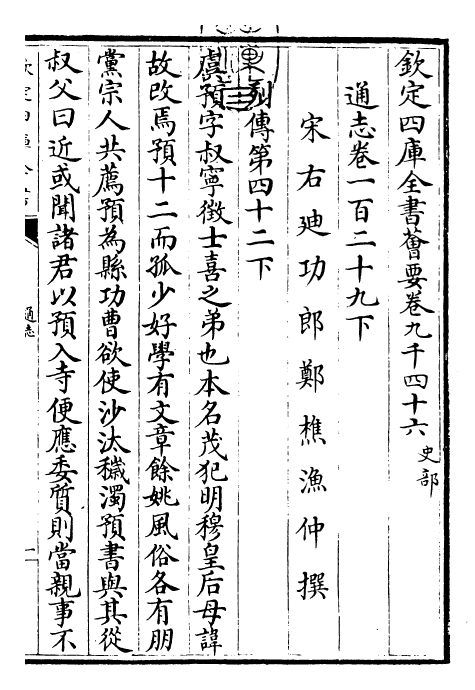 欽定四庫全書薈要卷九千四十六 史部
通志卷一百二十九下
宋右廸功郎鄭樵漁仲撰
列傳第四十二下
虞預字叔寧徴士喜之弟也本名茂犯明穆皇后母諱
故改焉預十二而孤少好學有文章餘姚風俗各有朋
黨宗人共薦預為縣功曹欲使沙汰穢濁預書與其從
叔父曰近或聞諸君以預入寺便應委質則當親事不
通志
一